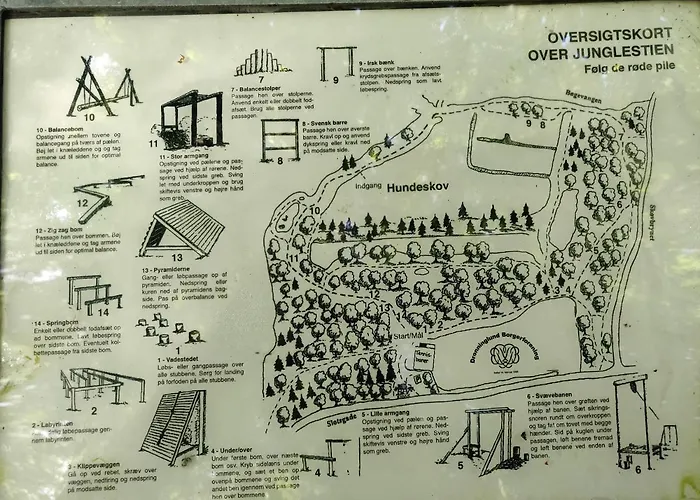 OVERSIGTSKORT
OVER JUNGLESTIEN
Følg de røde pile
10
10 - Balancebom
Opstigning imellem tovene og
balancegang på tværs af pælen.
Bøj let i knæleddene og og tag
armene ud til siden for optimal
balance.
12
12 - Zig zag bom
Passage hen over bommen. Bøj
let i knæleddene og tag armene
ud til siden for optimal balance.
14
14 - Springbom
Enkelt eller dobbelt fodafsæt op
ad bommene. Lavt løbespring
over sidste bom. Eventuelt kol-
bøttepassage fra sidste bom.
2
2 - Labyrinten
løbepassage gen-
nem labyrinten.
3 - Klippevæggen
Gå op ved rebet, skræv over
væggen, nedfiring og nedspring
på modsatte side.
11
11 - Stor armgang
Opstigning ved pælene og pas-
sage ved hjælp af rørene. Ned-
spring ved sidste greb. Sving
let med underkroppen og brug
skiftevis venstre og højre hånd
som greb.
13
13 - Pyramiderne
Gang- eller løbpassage op af
pyramiden. Nedspring eller
kuren ned af pyramidens bag-
side. Pas på overbalance ved
nedspring.
1
1 - Vadestedet
Løbs- eller gangpassage over
alle stubbene. Sørg for landing
på forfoden på alle stubbene.
7
7 - Balancestolper
Passage hen over stolperne.
Anvend enkelt eller dobbelt fod-
afsæt. Brug alle stolperne ved
passagen.
8
8 - Svensk barre
Passage hen over øverste
barre. Kravl op og anvend
dykspring eller kravl ned
på modsatte side.
9
9 - Irsk bænk
Passage over bænken. Anvend
krydsgrebspassage fra afsæts-
stolpen. Nedspring som lavt
løbespring.
4 - Under/over
Under første bom, over næste
bom osv. Kryb sidelæns under
bommene, og sæt et ben op
ovenpå bommene og sving det
andet ben igennem ved passage
hen over bommene
4
5 - Lille armgang
Opstigning ved pælen og pas-
sage ved hjælp af rørene. Ned-
spring ved sidste greb. Sving
let med underkroppen og brug
skiftevis venstre og højre hånd
som greb.
5
6 - Svævebanen
Passage hen over grøften ved
hjælp af banen. Sæt sikring-
snoren rundt om overkroppen
og tag fat om tovet med begge
hænder. Sid på kuglen under
passagen, løft benene fremad
og løft benene ved enden af
banen.
6
Bøgevangen
9 8
Indgang
Hundeskov
10
11
12
13
14
2
3
4
6
Start/Mål
Dronninglund Borgerforening
Slotsgade